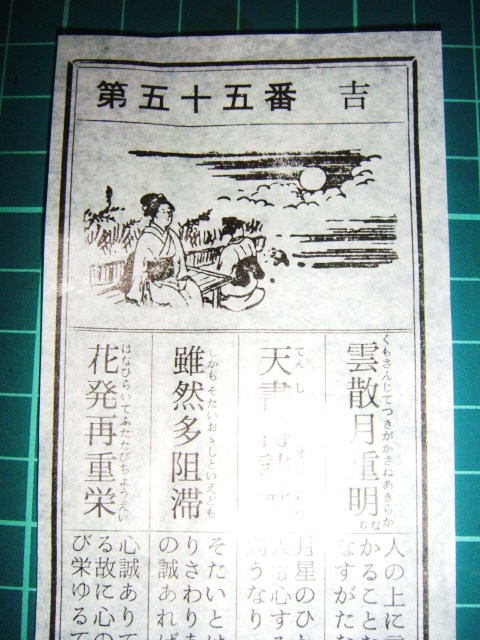 第五十五番 吉
くもさんじてつきがかさねあきらかなり
雲散月重明
てんし
天書
しかもそたいおゝしといえども
雖然多阻滞
はなひらいてふたたびちようえい
花発再重栄
人の上に
かること
なすがた
月星のひ
も心する
うなり
そたいとは
りさわりあ
の誠あれば
心誠ありて
る故に心の
び栄ゆるて